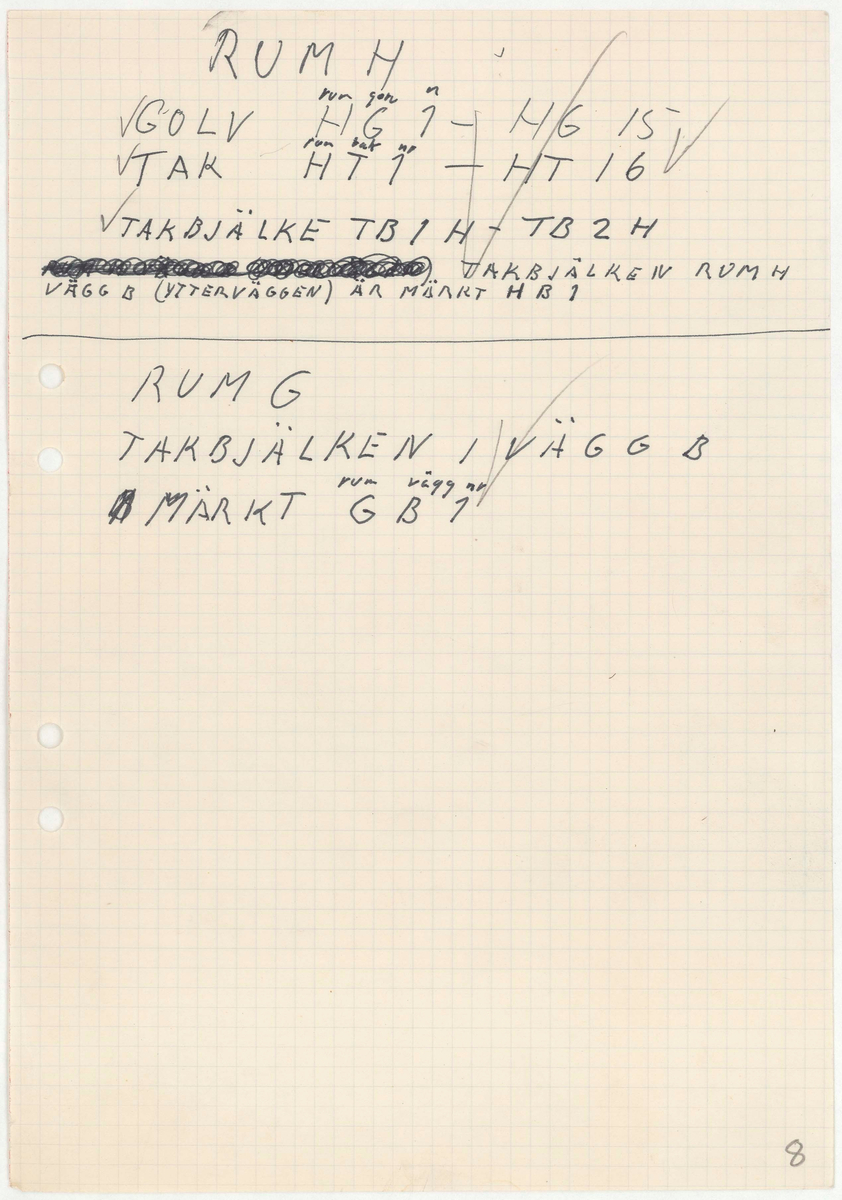 RUM H
rum golv n
✓GOLV HG 1 - HG 15 ✓
rum tak nr
✓TAK HT 1 - HT 16
✓TAKBJÄLKE TB1H - TB2H
TAKBJÄLKEN RUM H
VÄGG B (YTTERVÄGGEN) ÄR MÄRKT HB1
RUM G
TAKBJÄLKEN I VÄGG B
rum vägg nr
MÄRKT GB1
8